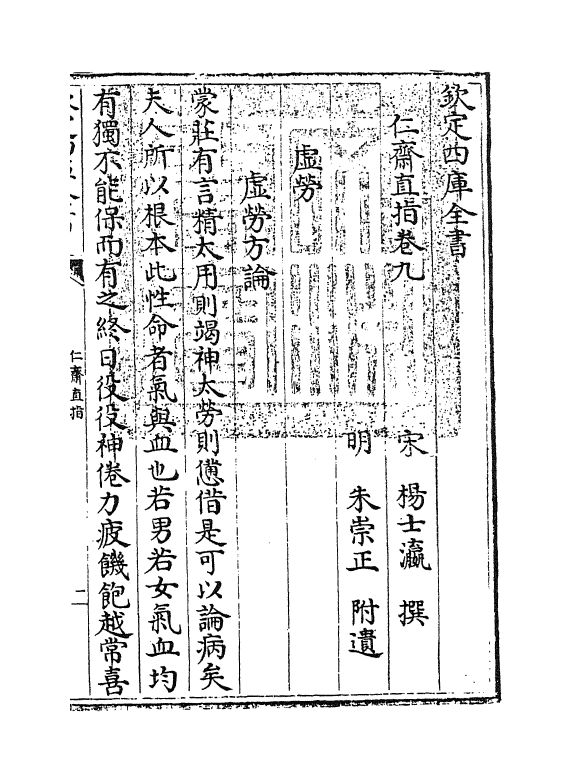 欽定四庫全書
仁齋直指卷九
宋 楊士瀛 撰
明 朱崇正 附遺
虛勞
虛勞方論
蒙莊有言精太用則竭神太勞則憊借是可以論病矣
夫人所以根本此性命者氣與血也若男若女氣血均
有獨不能保而有之終日役役神倦力疲饑飽越常喜
仁齋直指